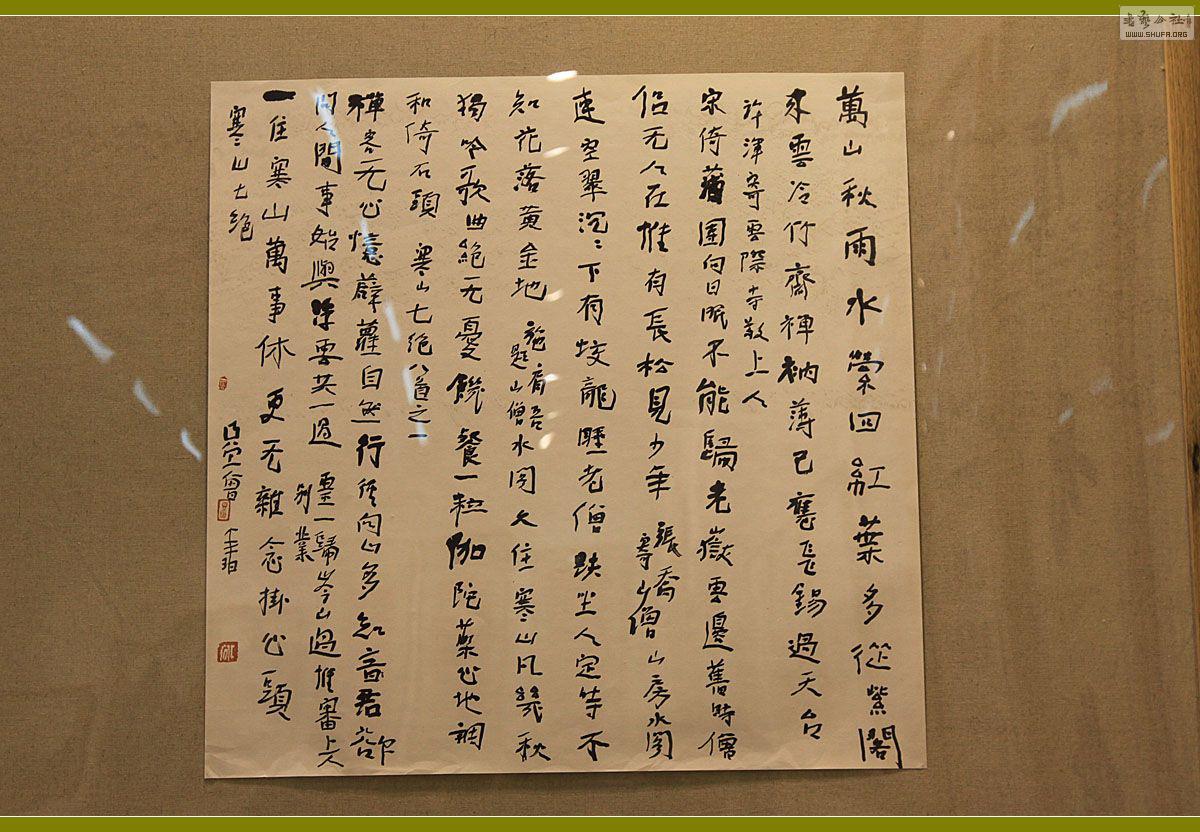 萬山秋雨水縈回紅葉多從紫閣
來雲冷竹齋禅衲薄已應飛錫過天台
許渾寄雲際寺敬上人
宋倚薝園向日眠不能歸老嶽雲邊舊時僧
侣无人在惟有長松見少年
張喬尋山僧
山房水閣
連空翠沉〻下有蛟龍
老僧趺坐入定等不
知花落黄金地
施肩吾題山僧水閣
久住寒山凡幾秋
獨吟歌曲絕无憂飢餐一粒伽陀藥心地調
和倚石頭
寒山七绝八首之一
禪客无心憶薜蘿自然行徑向山多知音君欲
問人間事始與浮雲共一過
靈一歸岑山過惟審上人别業
一住寒山萬事休更无雜念掛心頭
寒山七绝
WWW.SHUFA.ORG